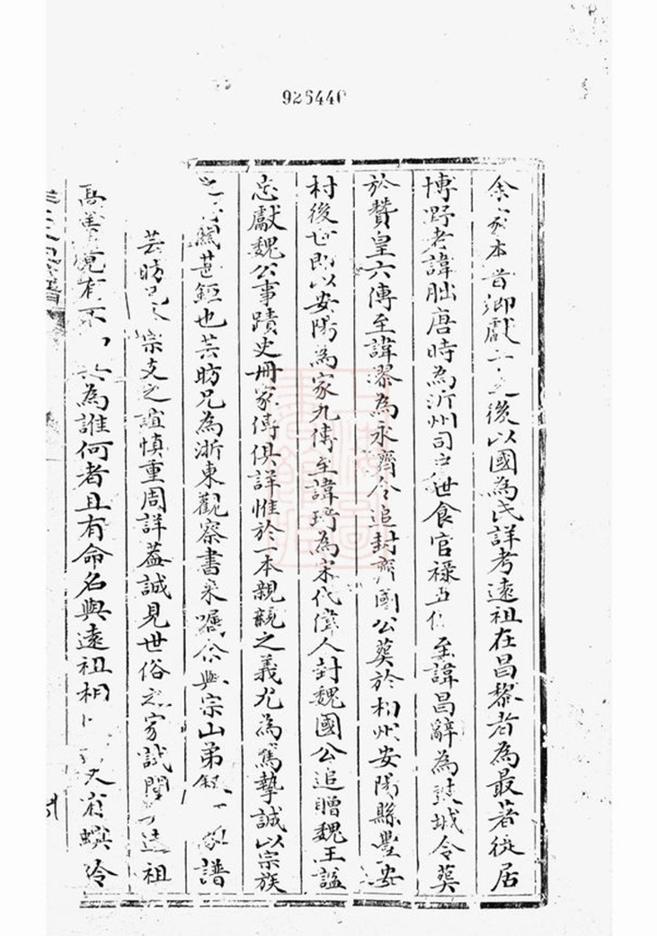 925440
余家本晋卿獻子之後以國為氏詳考遠祖在昌黎者為最著從居
博野者諱朏唐時為沂州司戶世食官祿五傳至諱昌辭為鼓城令葬
於贊皇六傳至諱璆為永濟令追封齊國公葬於相州安陽縣豐安
村後世即以安陽為家九傳至諱琦為宋代偉人封魏國公追贈魏王諡
忠獻魏公事蹟史冊家傳俱詳惟於一本親親之義尤為篤摯誠以宗族
之 甚鉅也芸昉兄為浙東觀察書來囑余與宗山弟叙 家譜
芸昉兄 宗支之誼慎重周詳蓋誠見世俗之家試問 遠祖
竟有不 為誰何者且有命名與遠祖相 又有螟蛉